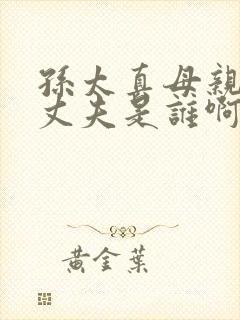 孫太真母親
丈夫是誰啊
黃金葉